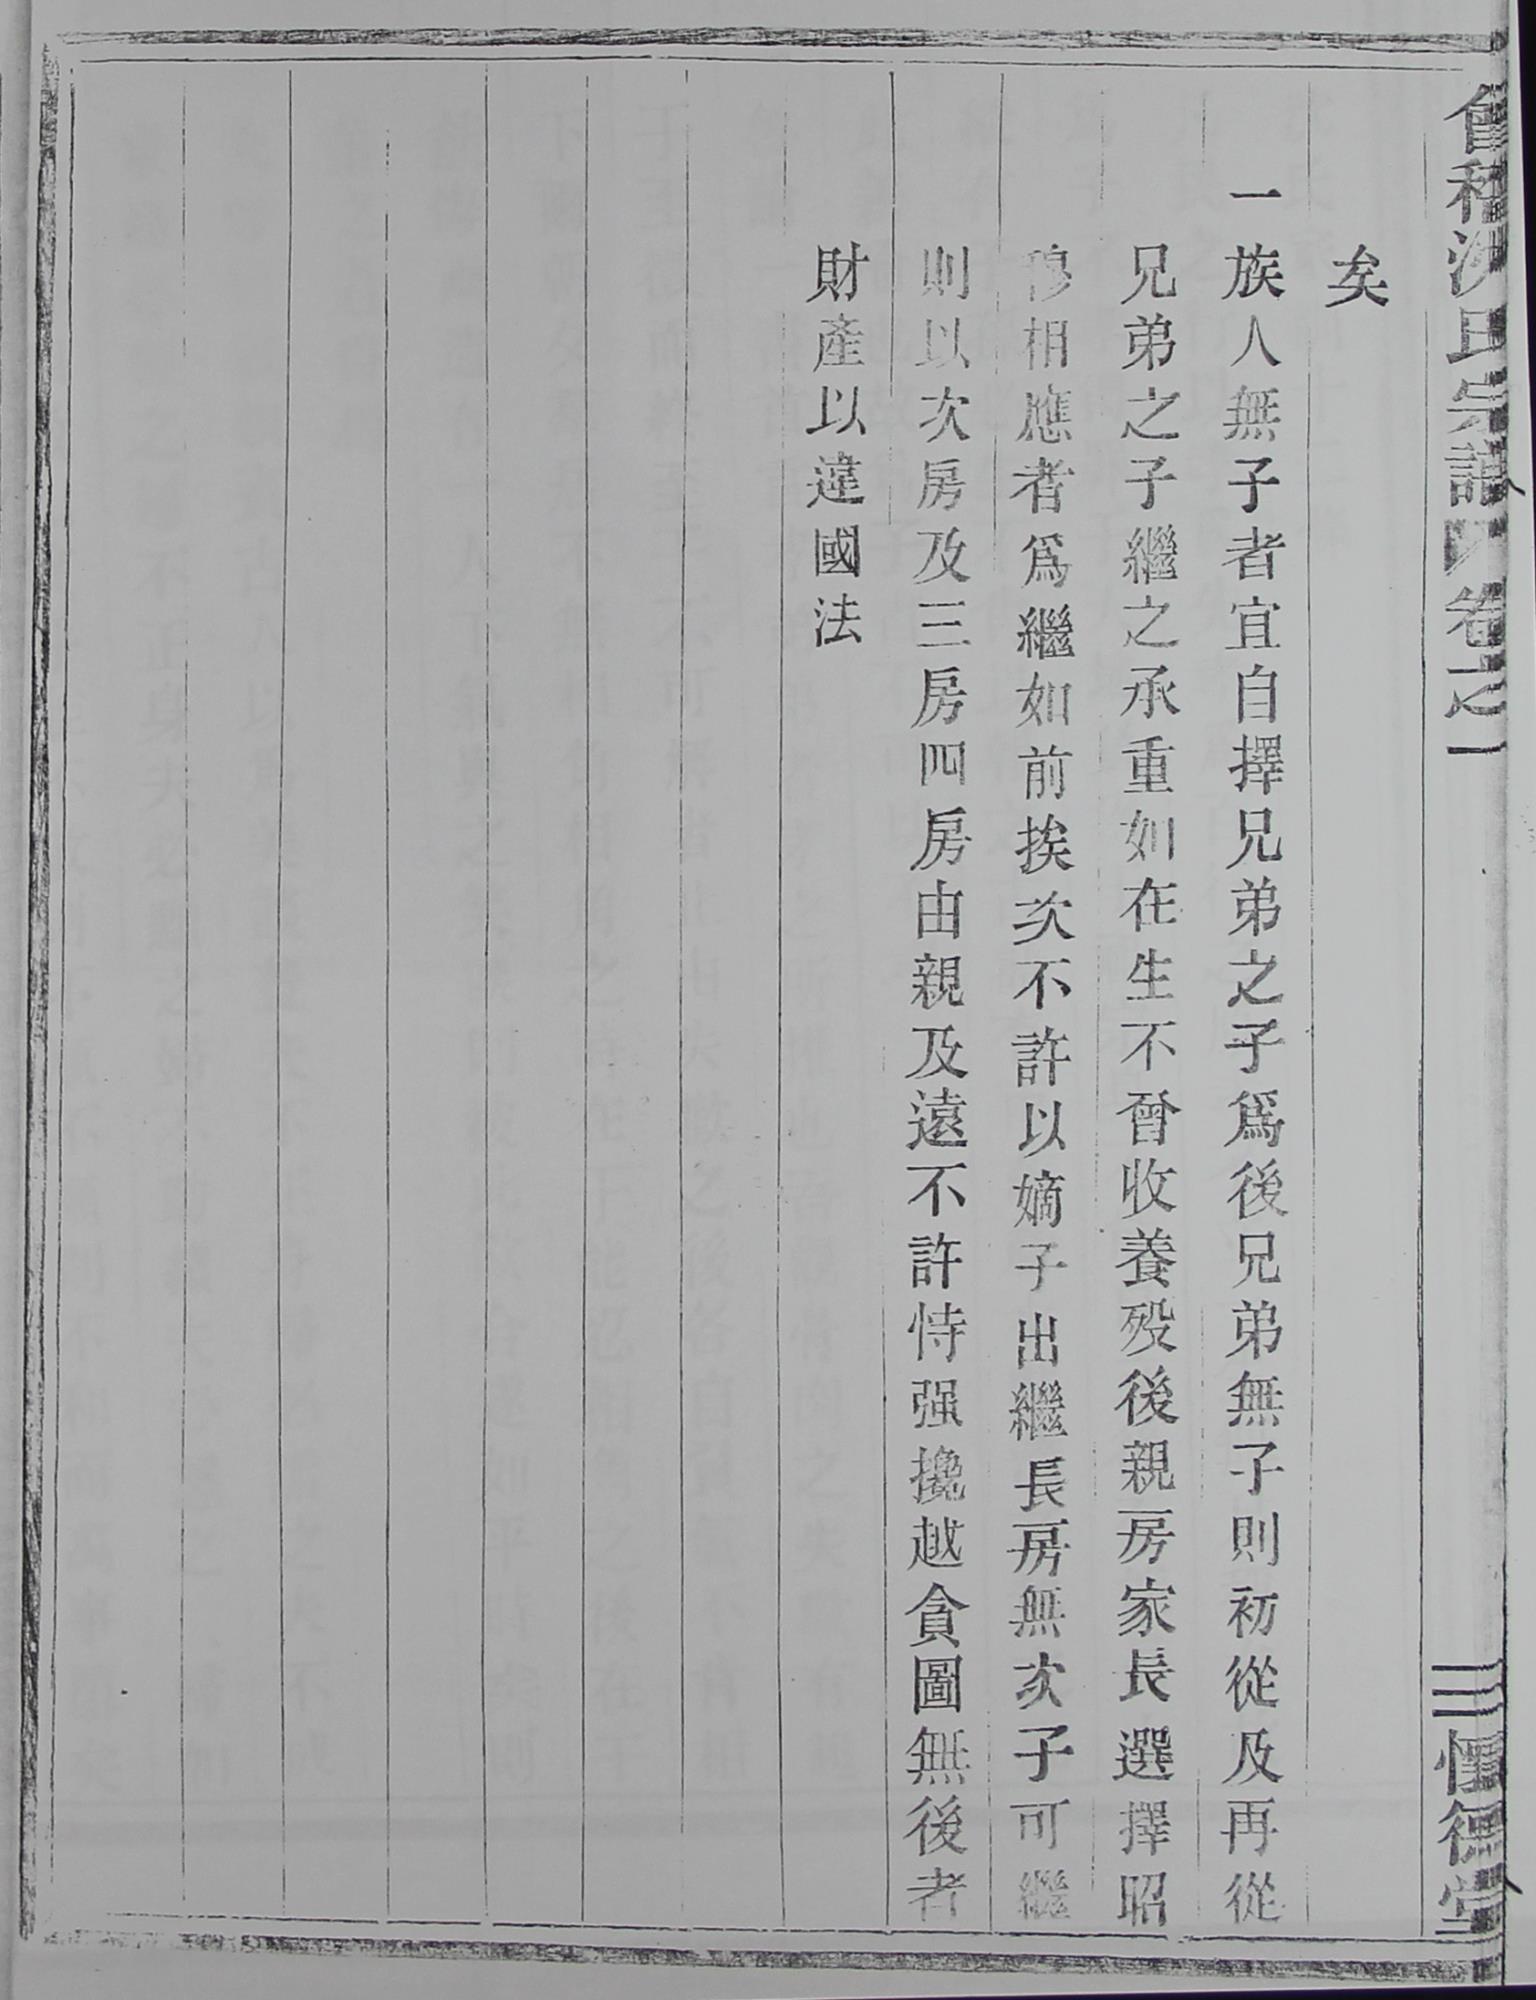 會稽沈氏宗譜 卷之一
三 惟德堂
矣
一族人無子者宜自擇兄弟之子爲後兄弟無子則初從及再從
兄弟之子繼之承重如在生不曾收養殁後親房家長選擇昭
穆相應者爲繼如前挨次不許以嫡子出繼長房無次子可繼
則以次房及三房四房由親及遠不許恃强攙越貪圖無後者
財產以違國法